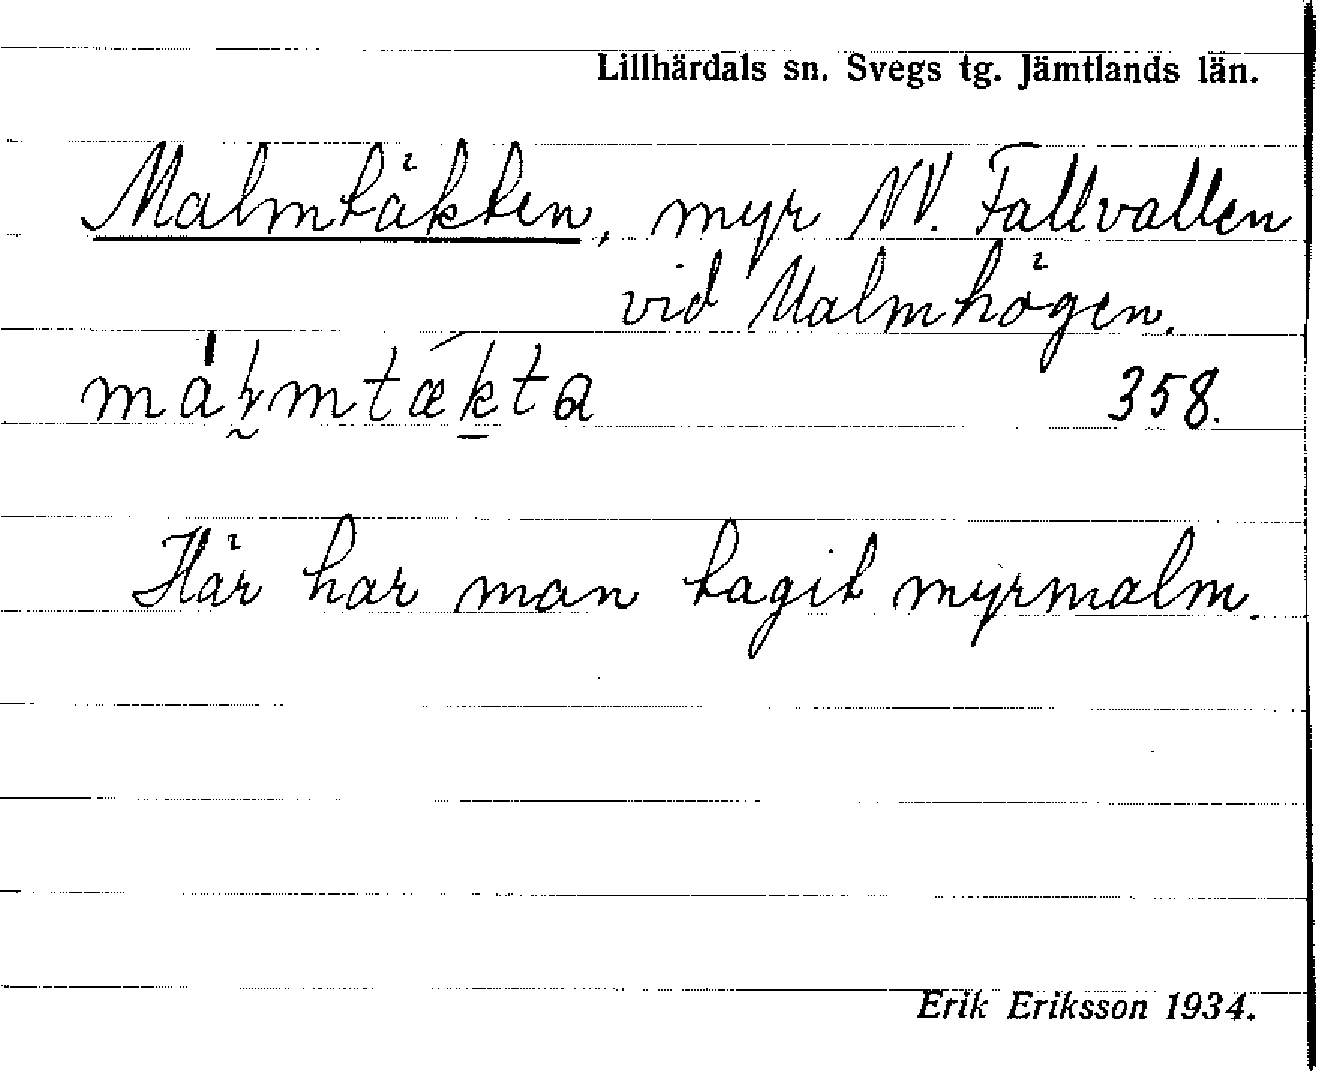 Lillhärdals sn. Svegs tg. Jämtlands län.
Malmtäkten, myr NV. Fallvallen
vid Malmhögen.
358.
Här har man tagit myrmalm.
Erik Eriksson 1934.